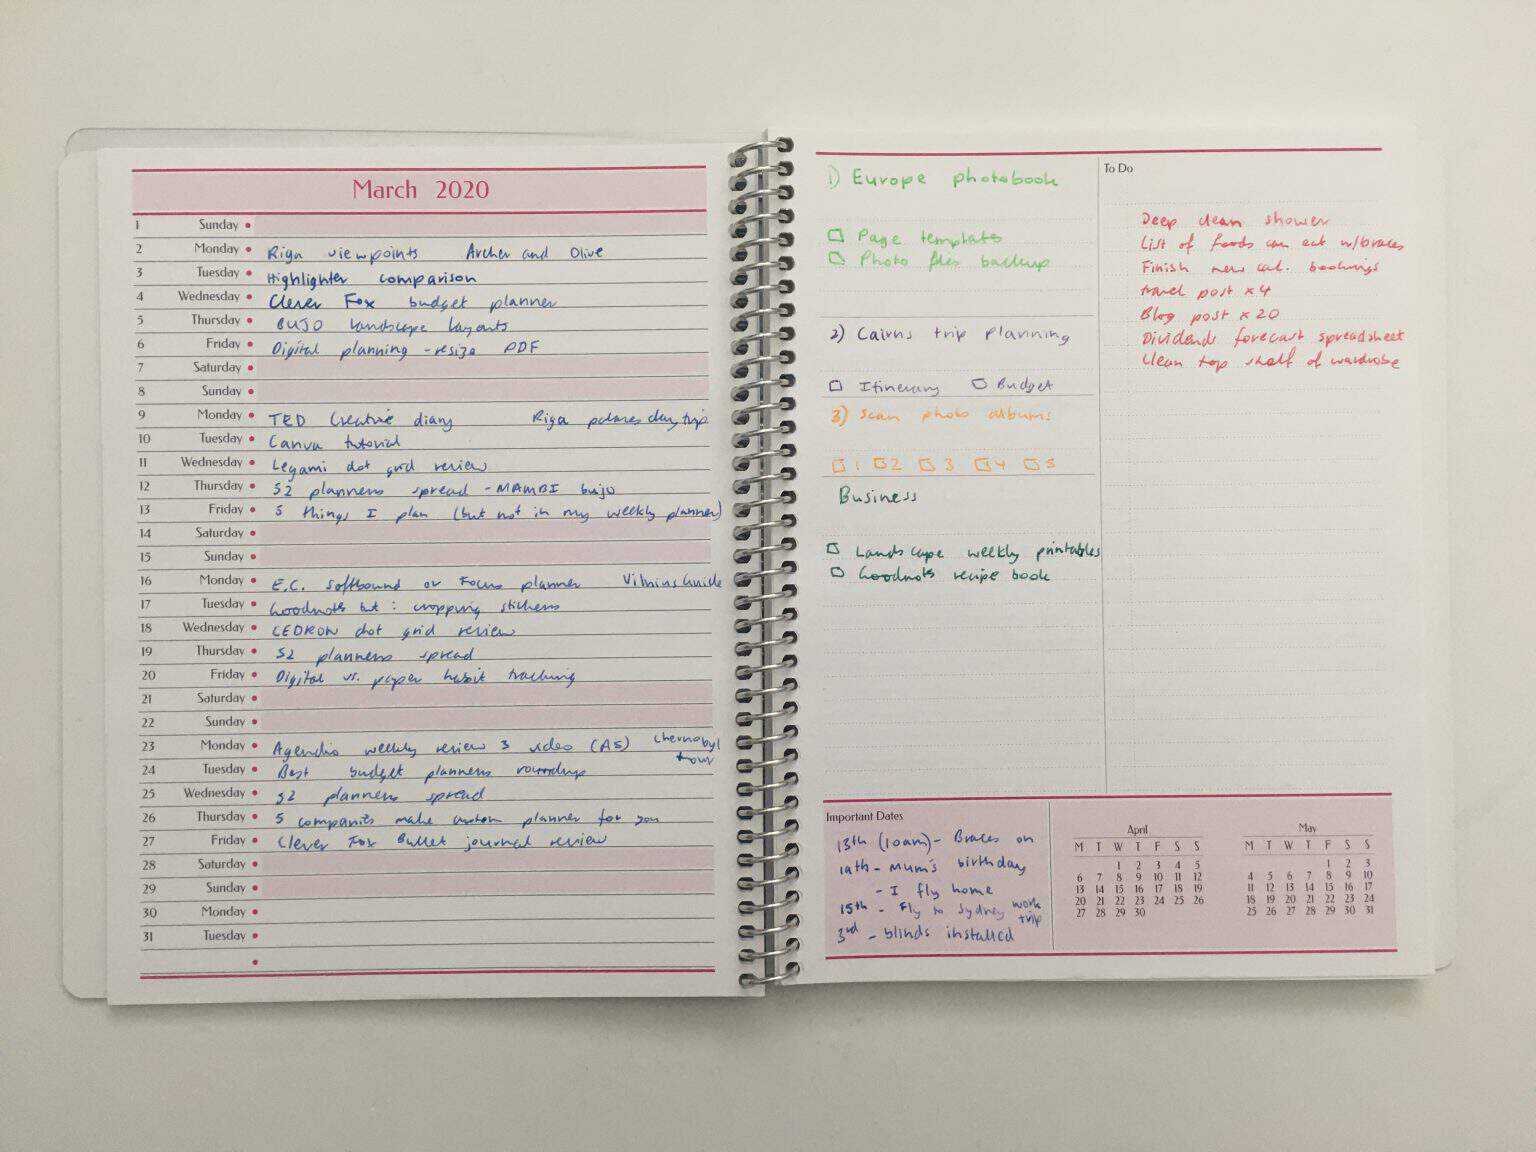 March 2020
1 Sunday
2 Monday Riga viewpoints Archer and Olive
3 Tuesday Highlighter comparison
4 Wednesday Clever Fox budget planner
5 Thursday BUJO landscape layouts
6 Friday Digital planning - resize PDF
7 Saturday
8 Sunday
9 Monday TED Creative diary Riga palaces day trip
10 Tuesday Canva tutorial
11 Wednesday Legami dot grid review
12 Thursday 52 planners spread - MAMBI bujo
13 Friday 5 things I plan (but not in my weekly planner)
14 Saturday
15 Sunday
16 Monday E.C. Softbound or Focus planner Vilnius Guide
17 Tuesday Goodnotes tut : cropping stickers
18 Wednesday CEDRON dot grid review
19 Thursday 52 planners spread
20 Friday Digital vs. paper habit tracking
21 Saturday
22 Sunday
23 Monday Agendio weekly review 3 video (A5) Chernobyl
tour
24 Tuesday Best budget planners roundup
25 Wednesday 52 planners spread
26 Thursday 5 companies make custom planner for you
27 Friday Clever Fox Bullet journal review
28 Saturday
29 Sunday
30 Monday
31 Tuesday
1) Europe photobook
Page templates
Photo files backup
2) Cairns trip planning
Itinerary Budget
3) Scan photo albums
1 2 3 4 5
Business
Landscape weekly printables
Goodnotes recipe book
To Do
Deep clean shower
List of foods can eat w/braces
Finish new cal. bookings
travel post x 4
Blog post x 20
Dividends forecast spreadsheet
Clean top shelf of wardrobe
Important Dates
13th (10am) - Braces on
19th - Mum's birthday
- I fly home
15th - Fly to Sydney work
trip
3rd - blinds installed
April
M T W T F S S
1 2 3 4 5
6 7 8 9 10 11 12
13 14 15 16 17 18 19
20 21 22 23 24 25 26
27 28 29 30
May
M T W T F S S
1 2 3
4 5 6 7 8 9 10
11 12 13 14 15 16 17
18 19 20 21 22 23 24
25 26 27 28 29 30 31